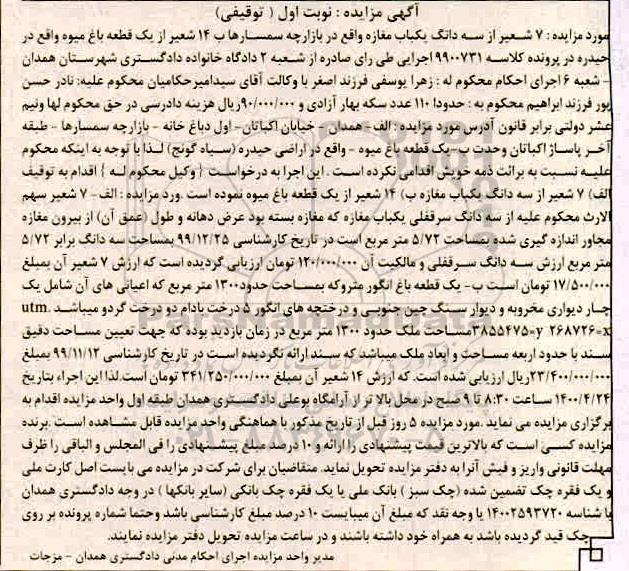 آگهی مزایده : نوبت اول ( توقیفی)
مورد مزایده : ۷ شعیر از سه دانگ یکباب مغازه واقع در بازارچه سمسارها ب ۱۴ شعیر از یک قطعه باغ میوه واقع در
حیدره در پرونده کلاسه ۹۹۰۰۷۳۱ اجرایی طی رای صادره از شعبه ۲ دادگاه خانواده دادگستری شهرستان همدان
- شعبه ۶ اجرای احکام محکوم له : زهرا یوسفی فرزند اصغر با وکالت آقای سیدامیرحکامیان محکوم علیه: نادر حسن
پور فرزند ابراهیم محکوم به : حدودا ۱۱۰ عدد سکه بهار آزادی و ۹۰/۰۰۰/۰۰۰ریال هزینه دادرسی در حق محکوم لها ونیم
عشر دولتی برابر قانون آدرس مورد مزایده : الف- همدان – خیابان اکباتان- اول دباغ خانه - بازارچه سمسارها - طبقه
آخر پاساژ اکباتان وحدت ب-یک قطعه باغ میوه - واقع در اراضی حیدره (سیاه گونج) لذا با توجه به اینکه محکوم
علیه نسبت به برائت ذمه خویش اقدامی نکرده است . این اجرا به درخواست { وکیل محکوم له } اقدام به توقیف
الف) ۷ شعیر از سه دانگ یکباب مغازه ب) ۱۴ شعیر از یک قطعه باغ میوه نموده است .ورد مزایده : الف- ۷ شعیر سهم
الارث محکوم علیه از سه دانگ سرقفلی یکباب مغازه که مغازه بسته بود عرض دهانه و طول (عمق آن) از بیرون مغازه
مجاور اندازه گیری شده بمساحت ۵/۷۲ متر مربع است در تاریخ کارشناسی ۹۹/۱۲/۲۵ بمساحت سه دانگ برابر ۵/۷۲
متر مربع ارزش سه دانگ سرقفلی و مالکیت آن ۱۲۰/۰۰۰/۰۰۰ تومان ارزیابی گردیده است که ارزش ۷ شعیر آن بمبلغ
۱۷/۵۰۰/۰۰۰ تومان است ب- یک قطعه باغ انگور متروکه بمساحت حدود۱۳۰۰ متر مربع که اعیانی های آن شامل یک
چار دیواری مخروبه و دیوار سنگ چین جنوبی و درختچه های انگور ۵ درخت بادام دو درخت گردو میباشد .utm
x=۲۶۸۷۲۶ y=۳۸۵۵۴۷۵مساحت ملک حدود ۱۳۰۰ متر مربع در زمان بازدید بوده که جهت تعیین مساحت دقیق
سند با حدود اربعه مساحت و ابعاد ملک میباشد که سند ارائه نگردیده است در تاریخ کارشناسی ۹۹/۱۱/۱۲ بمبلغ
۲۳/۴۰۰/۰۰۰/۰۰۰ریال ارزیابی شده است. که ارزش ۱۴ شعیر آن بمبلغ ۳۴۱/۲۵۰/۰۰۰ تومان است.لذا این اجراء بتاریخ
۱۴۰۰/۴/۲۴ ساعت ۸:۳۰ تا ۹ صبح در محل بالا تر از آرامگاه بوعلی دادگستری همدان طبقه اول واحد مزایده اقدام به
برگزاری مزایده می نماید .مورد مزایده ۵ روز قبل از تاریخ مذکور با هماهنگی واحد مزایده قابل مشاهده است .برنده
مزایده کسی است که بالاترین قیمت پیشنهادی را ارائه و ۱۰ درصد مبلغ پیشنهادی را فی المجلس و الباقی را ظرف
مهلت قانونی واریز و فیش آنرا به دفتر مزایده تحویل نماید. متقاضیان برای شرکت در مزایده می بایست اصل کارت ملی
و یک فقره چک تضمین شده (چک سبز ) بانک ملی یا یک فقره چک بانکی (سایر بانکها ) در وجه دادگستری همدان
با شناسه ۱۴۰۰۲۵۹۳۷۲۰ یا وجه نقد که مبلغ آن میبایست ۱۰ درصد مبلغ کارشناسی باشد وحتما شماره پرونده بر روی
چک قید گردیده باشد به همراه خود داشته باشند و در ساعت مزایده تحویل دفتر مزایده نمایند.
مدیر واحد مزایده اجرای احکام مدنی دادگستری همدان - مزجات